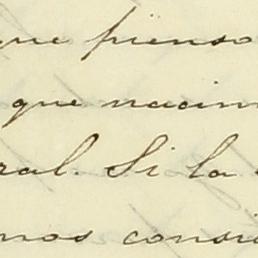 que pienso
que nacim
ral. Si la
nos consi